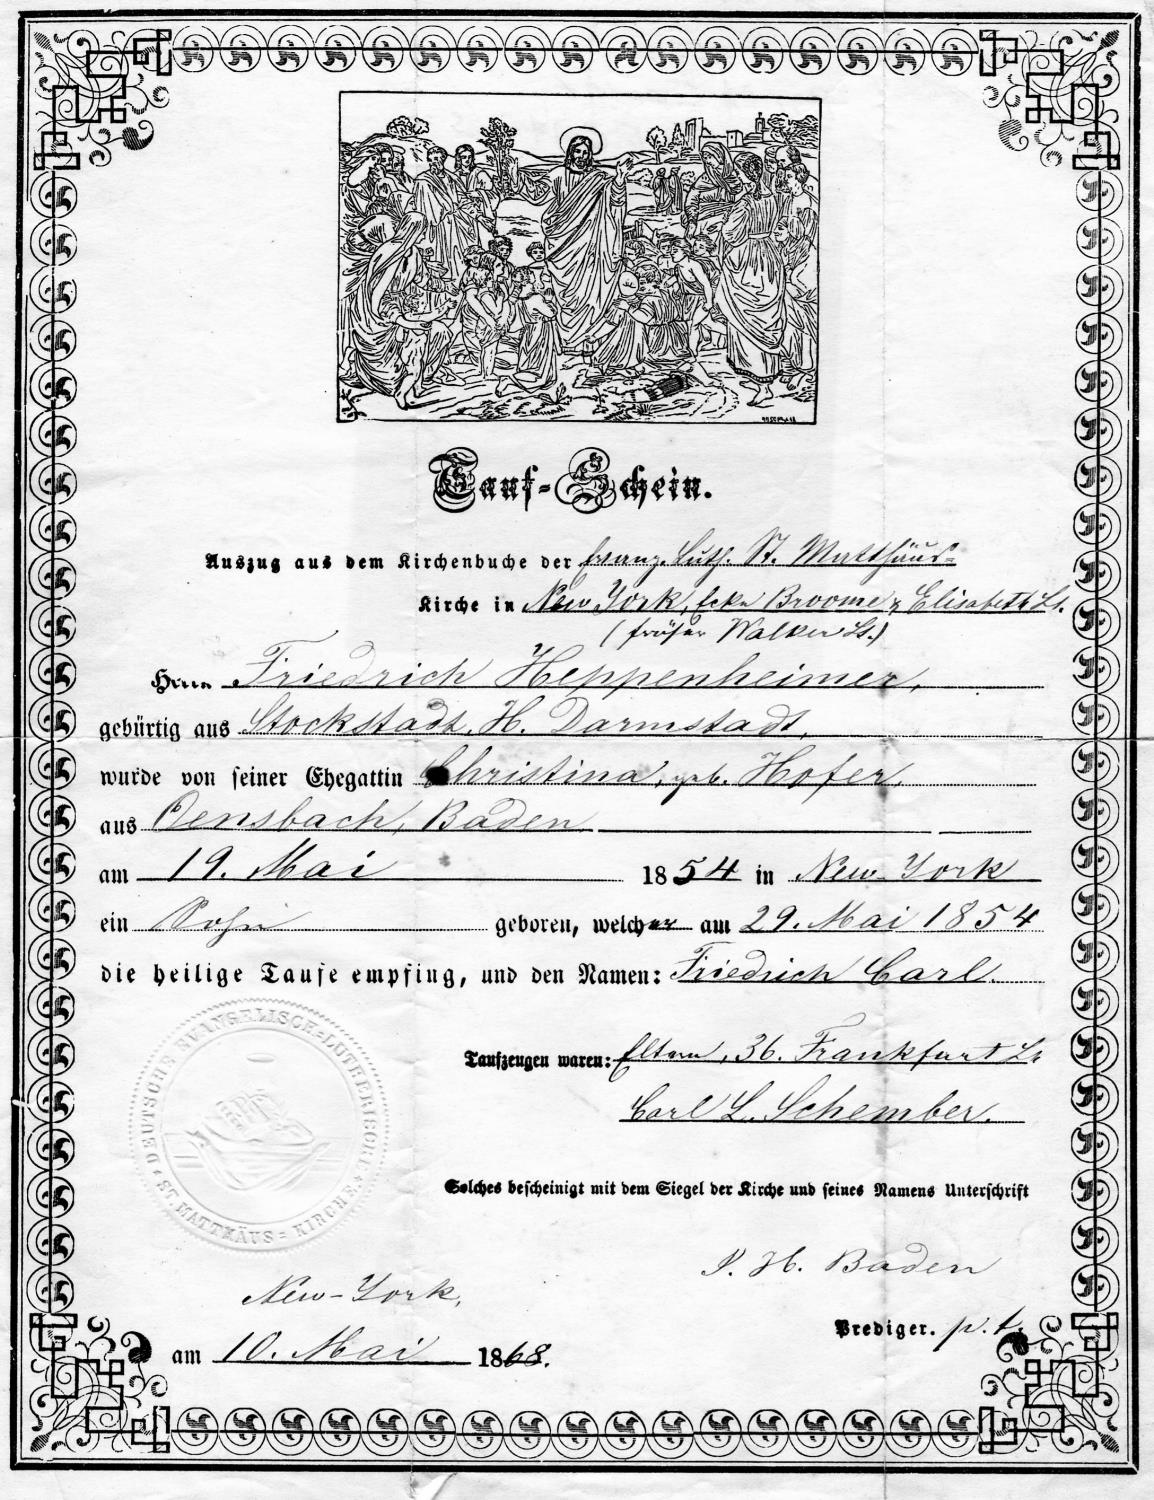 Tauf-Schein.
Auszug aus dem Kirchenbuche der Evang. Luth. St. Matthäus-
Kirche in New York, Ecke Broome & Elisabeth St.
(früher Walker St.)
Herrn Friedrich Heppenheimer,
gebürtig aus Stockstadt, H. Darmstadt,
wurde von seiner Ehegattin Christina, geb. Hofer,
aus Oensbach, Baden
am 19. Mai 1854 in New-York
ein Sohn geboren, welcher am 29. Mai 1854
die heilige Taufe empfing, und den Namen: Friedrich Carl.
Taufzeugen waren: Eltern, 36. Frankfurt St
Carl L. Schember.
Solches bescheinigt mit dem Siegel der Kirche und seines Namens Unterschrift
DEUTSCHE EVANGELISCH-LUTHERISCHE
ST. MATTHÄUS-KIRCHE
P. H. Baden
New-York,
Prediger. p.t.
am 10. Mai 1868.